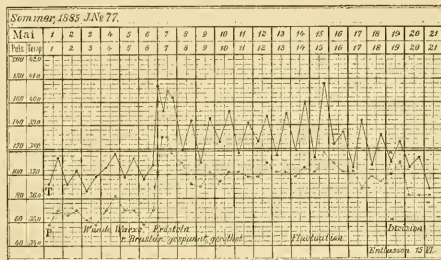 Sommer, 1885 J.№ 77.
Mai 1 2 3 4 5 6 7 8 9 10 11 12 13 14 15 16 17 18 19 20 21
Puls Temp 1 2 3 4 5 6 7 8 9 10 11 12 13 14 15 16 17 18 19 20 21
200 42.0
180 41.0
160 40.0
140 39.0
120 38.0
100 37.0
T.
80 36.0
60 35.0
P. Wunde Warze Frösteln Division
r. Brustdr. gespannt, geröthet. Fluctuation
40 34.0
Entlassen 15 VI.